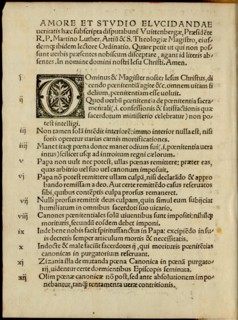 AMORE ET STVDIO ELVCIDANDAE
ueritatis hæc subscripta disputabunť Vuittenbergæ, Præsidēte
R. P. Martino Luther, Artiū & S. Theologiæ Magistro, eius-
demq; ibidem lectore Ordinatio. Quare petit ut qui non pos
sunt uerbis præsentes nobiscum disceptare, agant id literis ab-
sentes. In nomine domini nostri Iesu Christi, Amen.
i Ominus & Magister noster Iesus Christus, di
cendo pœnitentiā agite &c, omnem uitam fi
delium, pœnitentiam esse uoluit.
ij Quod uerbū pœnitentiæ de pœnitentia sacra-
mentali, i. confessionis & satisfactiōis quæ
sacerdotum ministerio celebratur) non po-
test intelligi.
iij Non tamen solā intēdit interiorē: immo interior nulla est, nisi
foris operetur uarias carnis mortificationes.
iiij Manet itaq; pœna donec manet odium sui, .i. pœnitentia uera
intus) scilicet usq; ad introitum regni cælorum.
v Papa non uult nec potest, ullas pœnas remittere: præter eas,
quas arbitrio uel suo uel canonum imposuit.
vi Papa nō potest remittere ullam culpā, nisi declarādo & appro
bando remissam a deo. Aut certe remittēdo casus reseruatos
sibi, quibus contēptis culpa prorsus remaneret.
vij Nulli prorsus remittit deus culpam, quin simul eum subijciat
humiliatum in omnibus sacerdoti suo uicario.
viij Canones pœnitentiales solū uiuentibus sunt impositi: nihilq;
morituris, secundū eosdem debet imponi.
ix Inde bene nobis facit spiritussanctus in Papa: excipiēdo in su-
is decretis semper articulum mortis & necessitatis.
x Indocte & male faciūt sacerdotes ij, qui morituris pœnitētias
canonicas in purgatorium reseruant.
xi Zizania illa de mutanda pœna Canonica in pœnā purgato-
rij, uidentur certe dormientibus Episcopis seminata.
xij Olim pœnæ canonicæ nō post, sed ante absolutionem impo-
nebantur, tanq̄ tentamenta ueræ contritionis.